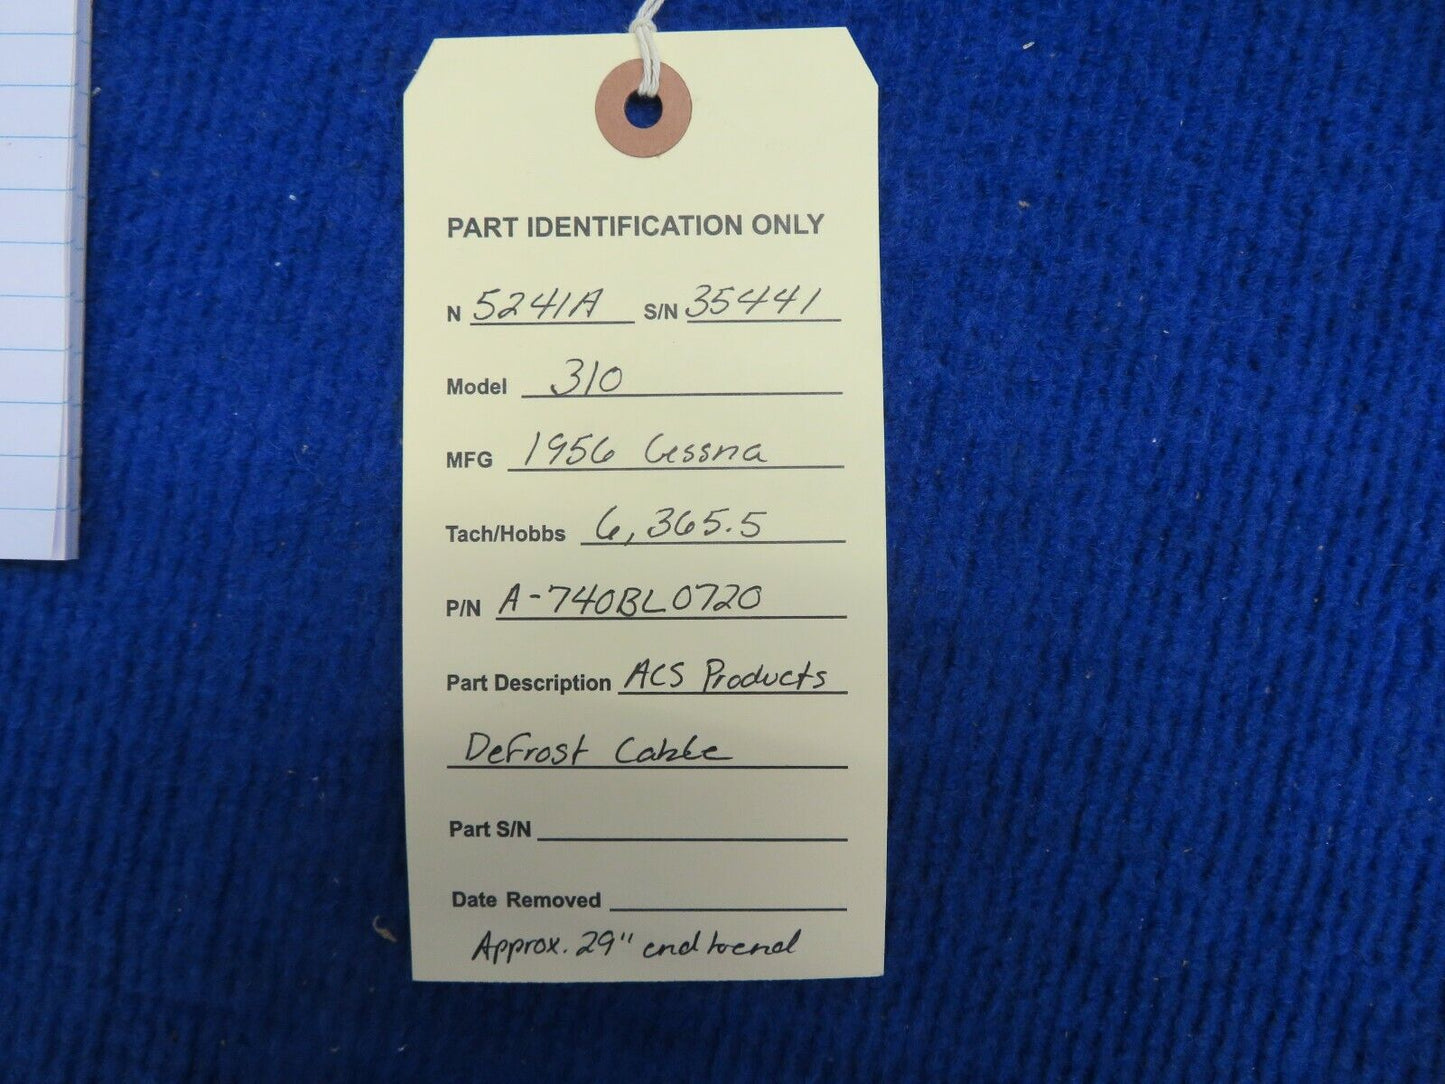 PART IDENTIFICATION ONLY
N 5241A S/N 35441
Model 310
MFG 1956 Cessna
Tach/Hobbs 6,365.5
P/N A-740BL0720
Part Description ACS Products
Defrost Cable
Part S/N
Date Removed
Approx. 29" end to end